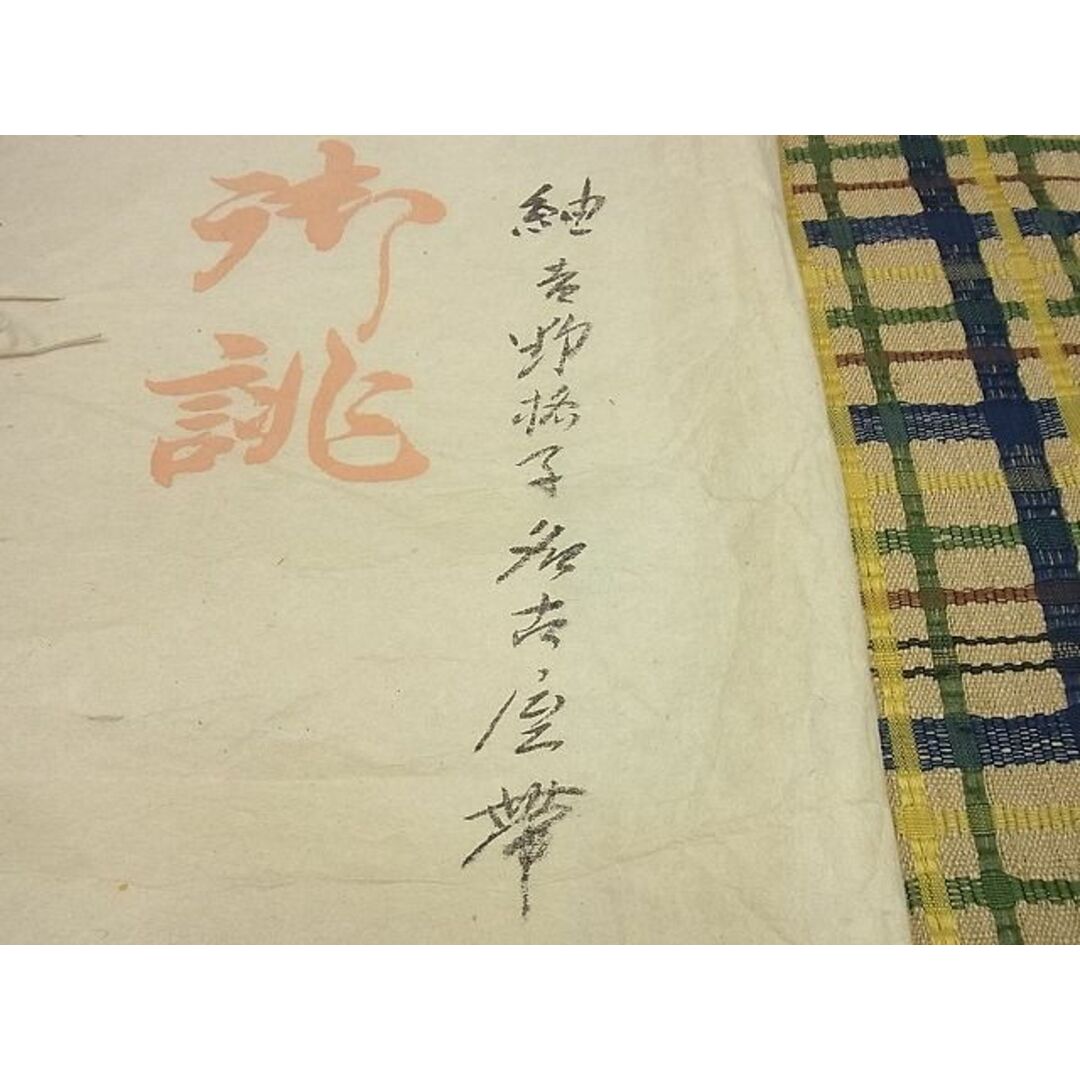 紬吉野格子名古屋帯
御誂